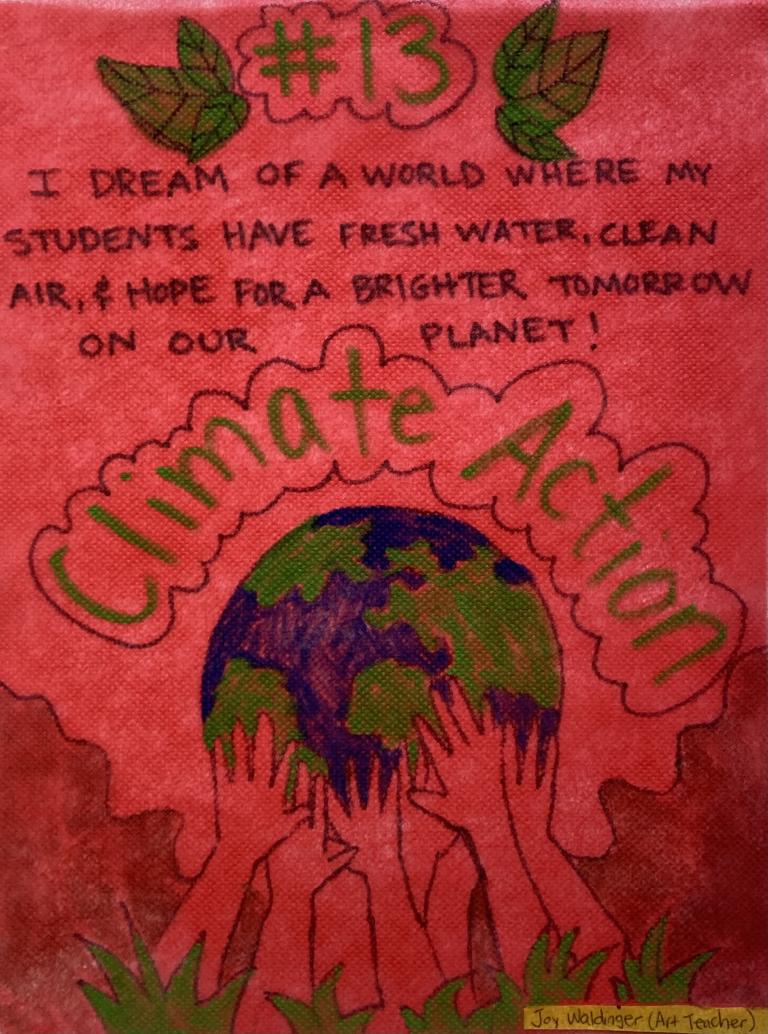 #13
I DREAM OF A WORLD WHERE MY
STUDENTS HAVE FRESH WATER, CLEAN
AIR, & HOPE FOR A BRIGHTER TOMORROW
ON OUR PLANET!
Climate Action
Joy Waldinger (Art Teacher)